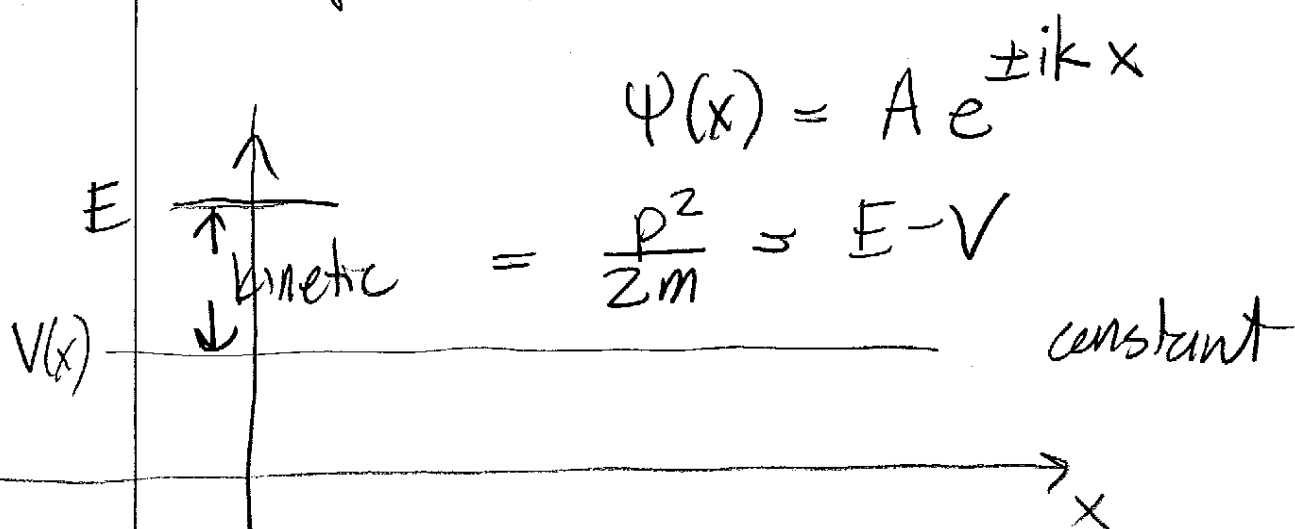 ψ(x) = A e^{±ikx}
E
kinetic = p²/2m = E-V
V(x) constant
x